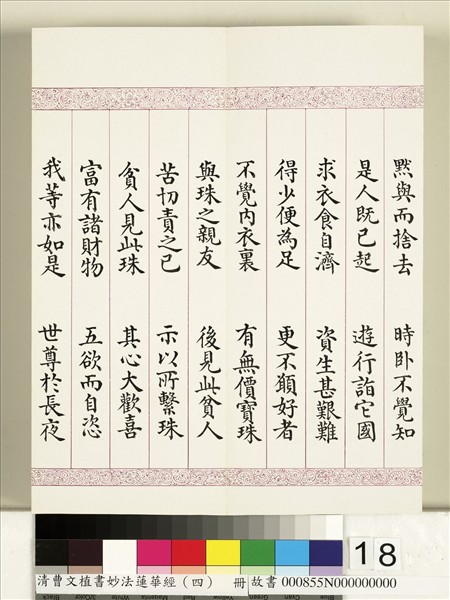 默與而捨去　時卧不覺知
是人既已起　遊行詣它國
求衣食自濟　資生甚艱難
得少便為足　更不願好者
不覺內衣裏　有無價寶珠
與珠之親友　後見此貧人
苦切責之已　示以所繫珠
貧人見此珠　其心大歡喜
富有諸財物　五欲而自恣
我等亦如是　世尊於長夜
18
清曹文植書妙法蓮華經（四）　冊 故書 000855N000000000